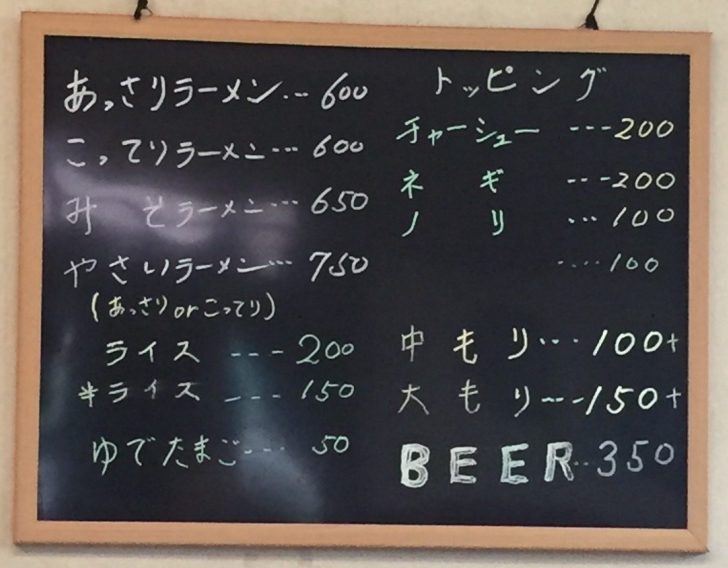 あっさりラーメン... 600
こってりラーメン... 600
みそラーメン... 650
やさいラーメン... 750
(あっさりorこってり)
ライス --- 200
半ライス --- 150
ゆでたまご... 50
トッピング
チャーシュー --- 200
ネギ --- 200
ノリ ... 100
.... 100
中もり... 100+
大もり--- 150+
BEER.. 350